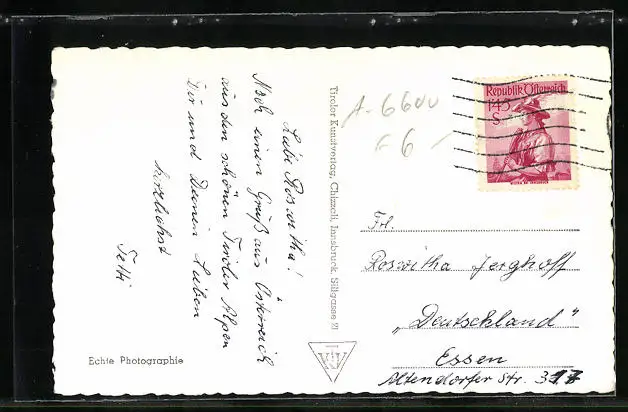 Liebe Roswitha!
Noch einen Gruß aus Österreich
aus den schönen Tiroler Alpen
Dir und Deinen Lieben
herzlichst
Tetti
Echte Photographie
Tiroler Kunstverlag, Chizzali, Innsbruck, Sillgasse 21
A-6600
66
Republik Österreich
1'45
S
Frl.
Roswitha Jerghoff
„Deutschland"
Essen
Altendorfer Str.